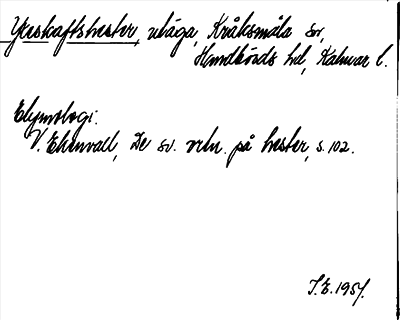 Yxeskaftshester, utäga, Kråksmåla sn,
Handbörds hd, Kalmar l.
Etymologi:
V. Ekenvall, De sv. ortn. på hester, s. 102.
S.E. 1951.